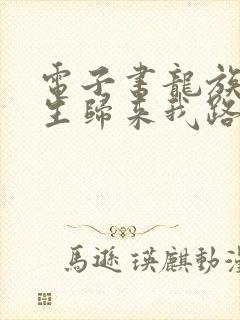 電子書龍族
生歸來我路
馬遜瑛麒動漫